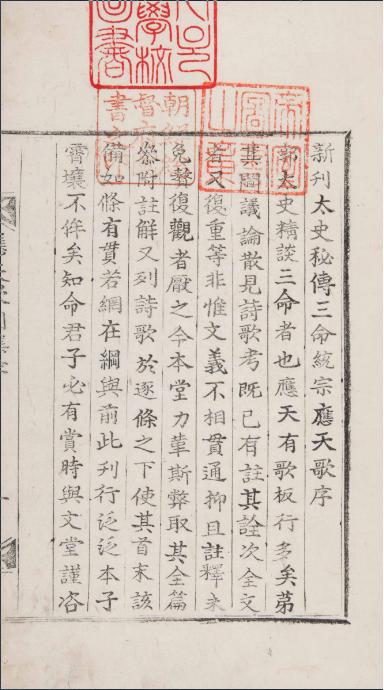 學校
書
新刊太史秘傳三命統宗應天歌序
郭太史精談三命者也應天有歌板行多矣苐
其間議論散見詩歌考既已有註其詮次全文
者又復重等非惟文義不相貫通抑且註釋未
免聱復觀者厭之今本堂力革斯弊取其全篇
叅附註解又列詩歌於逐條之下使其首末該
備如條有貫若綱在綱與前此刊行泛泛本子
霄壤不侔矣知命君子必有賞時與文堂謹咨